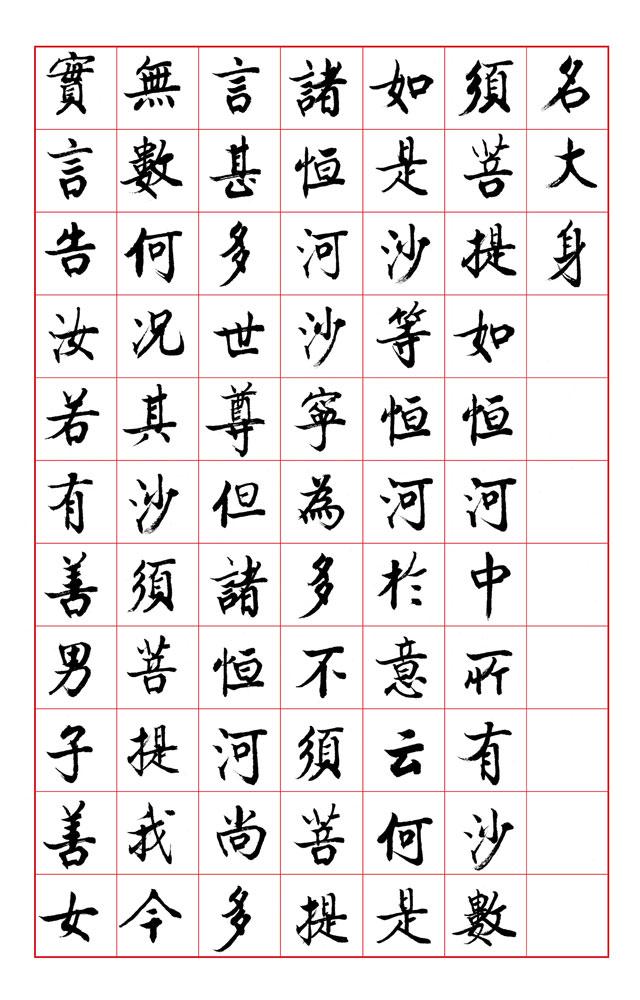 名大身
須菩提如恒河中所有沙數
如是沙等恒河於意云何是
諸恒河沙寧為多不須菩提
言甚多世尊但諸恒河尚多
無數何況其沙須菩提我今
實言告汝若有善男子善女